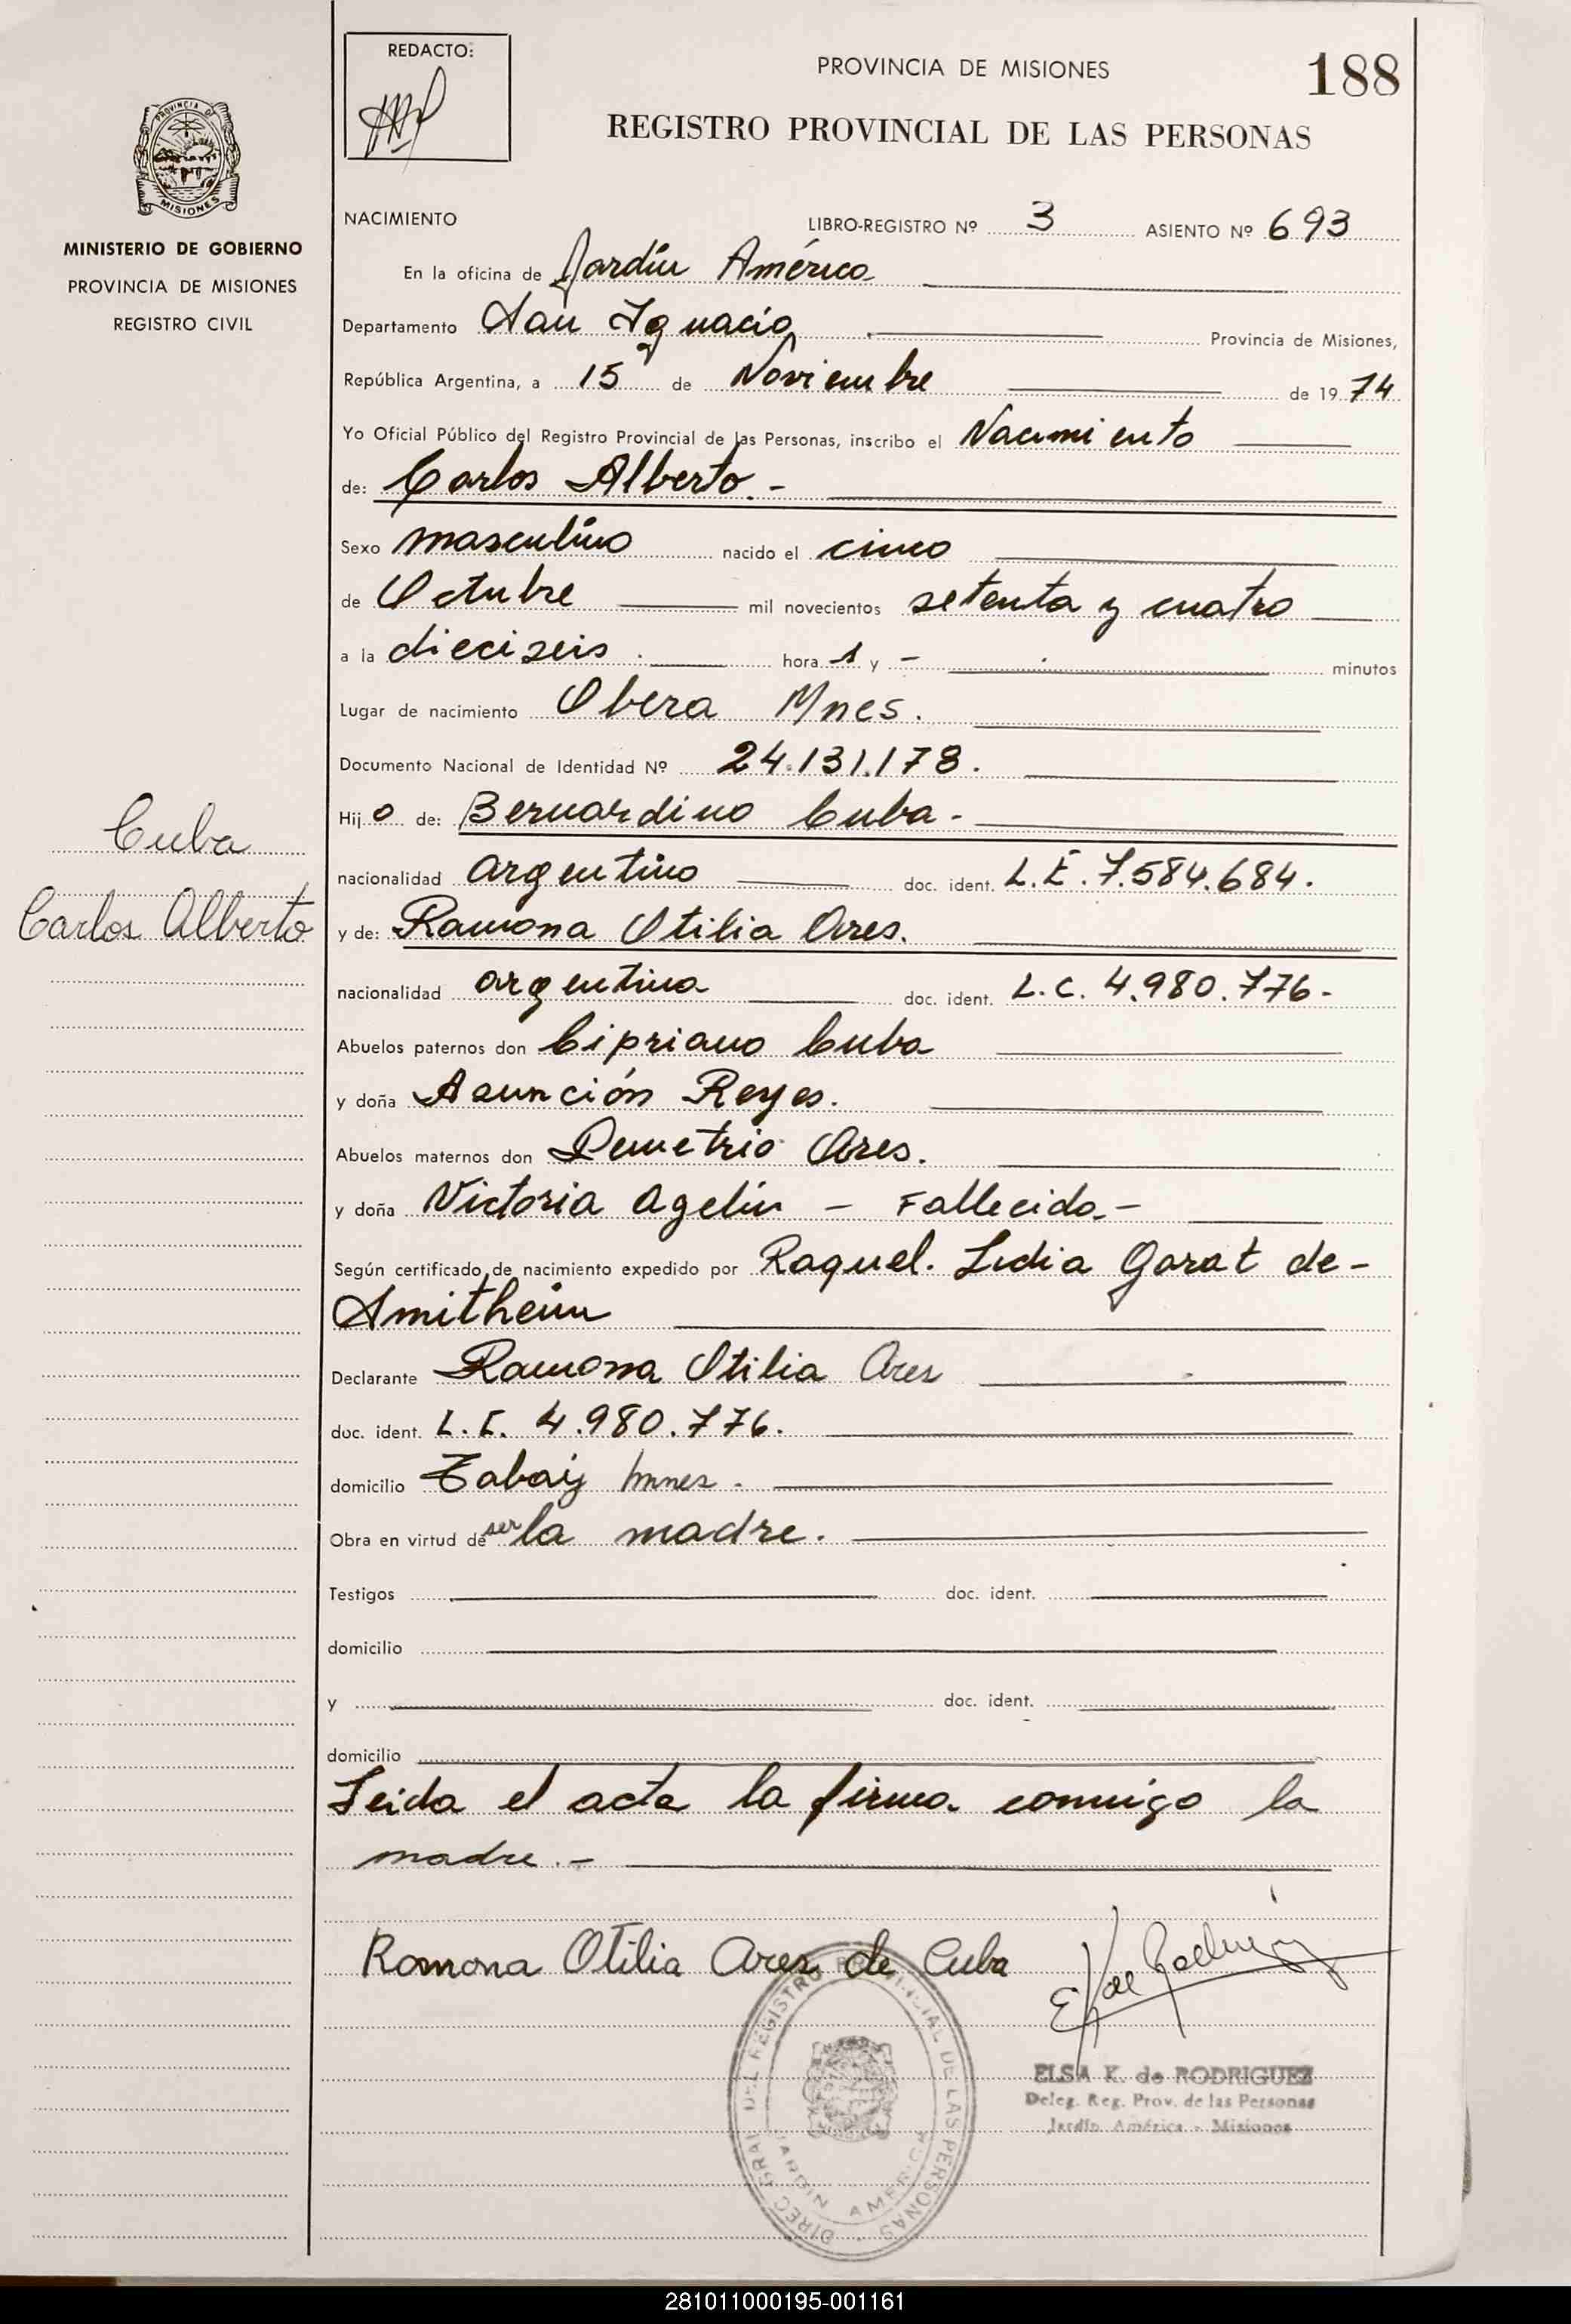 REDACTO:
PROVINCIA DE MISIONES
188
REGISTRO PROVINCIAL DE LAS PERSONAS
PROVINCIA DE MISIONES
MINISTERIO DE GOBIERNO
PROVINCIA DE MISIONES
REGISTRO CIVIL
NACIMIENTO LIBRO-REGISTRO Nº 3 ASIENTO Nº 693
En la oficina de Jardín América
Departamento San Ignacio Provincia de Misiones,
República Argentina, a 15 de Noviembre de 1974
Yo Oficial Público del Registro Provincial de las Personas, inscribo el Nacimiento
de: Carlos Alberto.-
Sexo masculino nacido el cinco
de Octubre mil novecientos setenta y cuatro
a la dieciseis hora s y - minutos
Lugar de nacimiento Obera Mnes.
Documento Nacional de Identidad Nº 24.131.178.
Hijo de: Bernardino Cuba-
nacionalidad argentino doc. ident. L.E. 7.584.684.
Cuba
Carlos Alberto
y de: Ramona Otilia Ares.
nacionalidad argentina doc. ident. L.C. 4.980.776-
Abuelos paternos don Cipriano Cuba
y doña Asunción Reyes.
Abuelos maternos don Demetrio Ares.
y doña Victoria Agelin - Fallecida.-
Según certificado de nacimiento expedido por Raquel. Lidia Garat de-
Smitheim
Declarante Ramona Otilia Ares
doc. ident. L.C. 4.980.776.
domicilio Tabay Mnes.
Obra en virtud de ser la madre.
Testigos doc. ident.
domicilio
y doc. ident.
domicilio
Leida el acta la firma conmigo la
madre.-
Ramona Otilia Ares de Cuba
E K de Rodriguez
ELSA K. de RODRIGUEZ
Deleg. Reg. Prov. de las Personas
Jardín América - Misiones
DIREC. GRAL. DEL REGISTRO PROVINCIAL DE LAS PERSONAS
JARDIN AMERICA
281011000195-001161